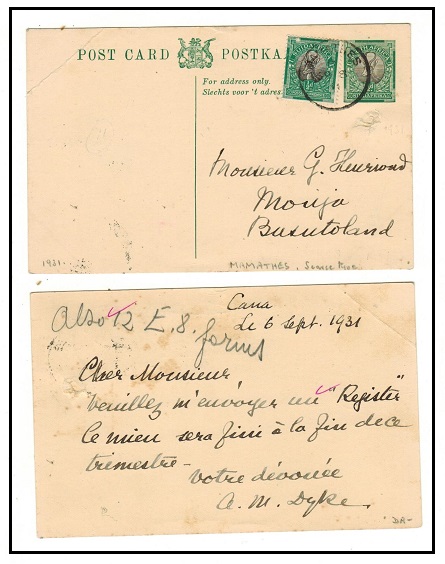 POST CARD POSTKAA
For address only.
Slechts voor 't adres.
Monsieur G. Heurwood
Morija
Basutoland
1931
MAMATHES,
Cana
Le 6 Sept. 1931
Also 12 E. 8. forms
Cher Monsieur
Veuillez m'envoyer un "Register"
le mien sera fini à la fin de ce
trimestre -
Votre dévouée
A. M. Dyke.